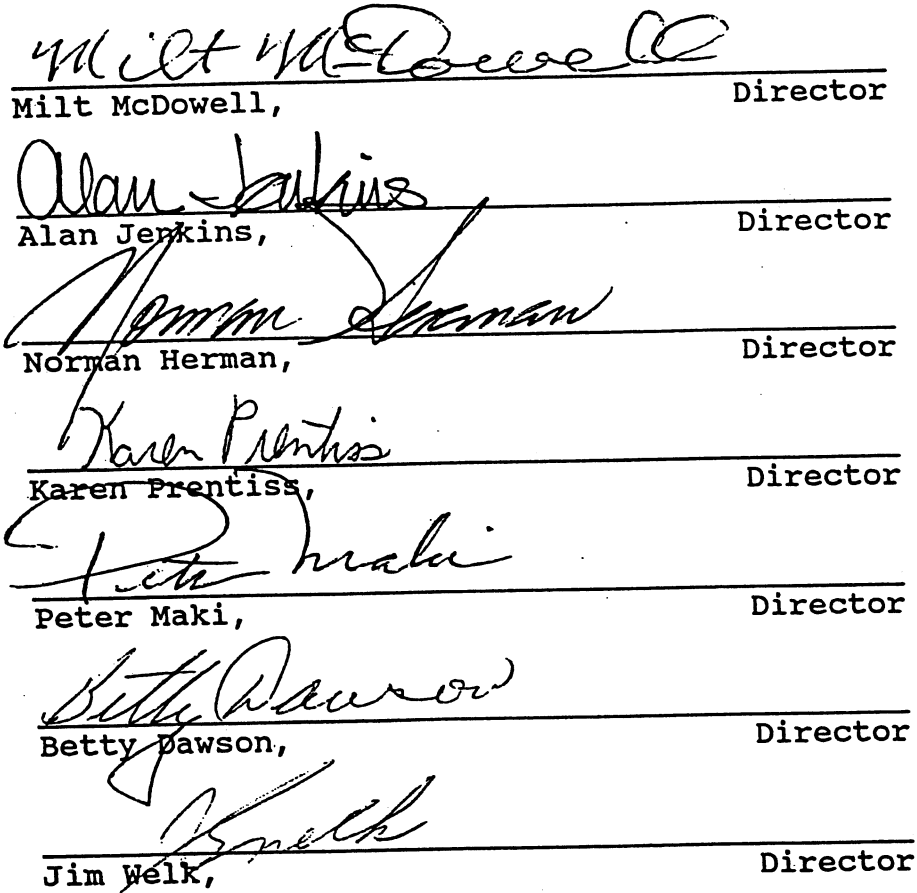 Milt McDowell
Milt McDowell, Director
Alan Jenkins
Alan Jenkins, Director
Norman Herman
Norman Herman, Director
Karen Prentiss
Karen Prentiss, Director
Peter Maki
Peter Maki, Director
Betty Dawson
Betty Dawson, Director
Jim Welk, Director